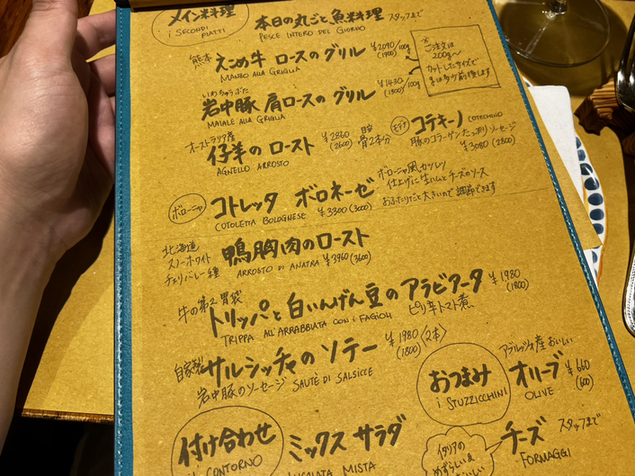 メイン料理
i SECONDI
PIATTI
本日の丸ごと魚料理 スタッフまで
PESCE INTERO DEL GIORNO
熊本 えこめ牛 ロースのグリル ¥2090/100g
MANZO ALLA GRIGLIA (1900)
※ ご注文は
200g〜
カットしたサイズで
いわちゅうぶた
岩中豚 肩ロースのグリル ¥1430/100g
MAIALE ALLA GRIGLIA (1300)
オーストラリア産
仔羊のロースト ¥2860 骨2本分
AGNELLO ARROSTO (2600)
モデナ コテキーノ COTECHINO
豚のコラーゲンたっぷりソーセージ
¥3080 (2800)
ボローニャ コトレッタ ボロネーゼ
COTOLETTA BOLOGNESE ¥3300 (3000)
ボローニャ風カツレツ
仕上げに生ハムとチーズのソース
北海道
スノーホワイト
チェリバレー種
鴨胸肉のロースト
ARROSTO DI ANATRA ¥3960 (3600)
牛の第2胃袋
トリッパと白いんげん豆のアラビアータ ¥1980
TRIPPA ALL'ARRABBIATA CON i FAGIOLI ピリ辛トマト煮 (1800)
自家製 サルシッチャのソテー ¥1980 〈2本〉
岩中豚のソーセージ SAUTÈ DI SALSICCE (1800)
おつまみ
i STUZZICHINI
アブルッツォ産 おいしい
オリーブ ¥660
OLIVE (600)
付け合わせ
CONTORNO
ミックス サラダ
INSALATA MISTA
イタリアの
めずらしい
チーズ スタッフまで
FORMAGGI